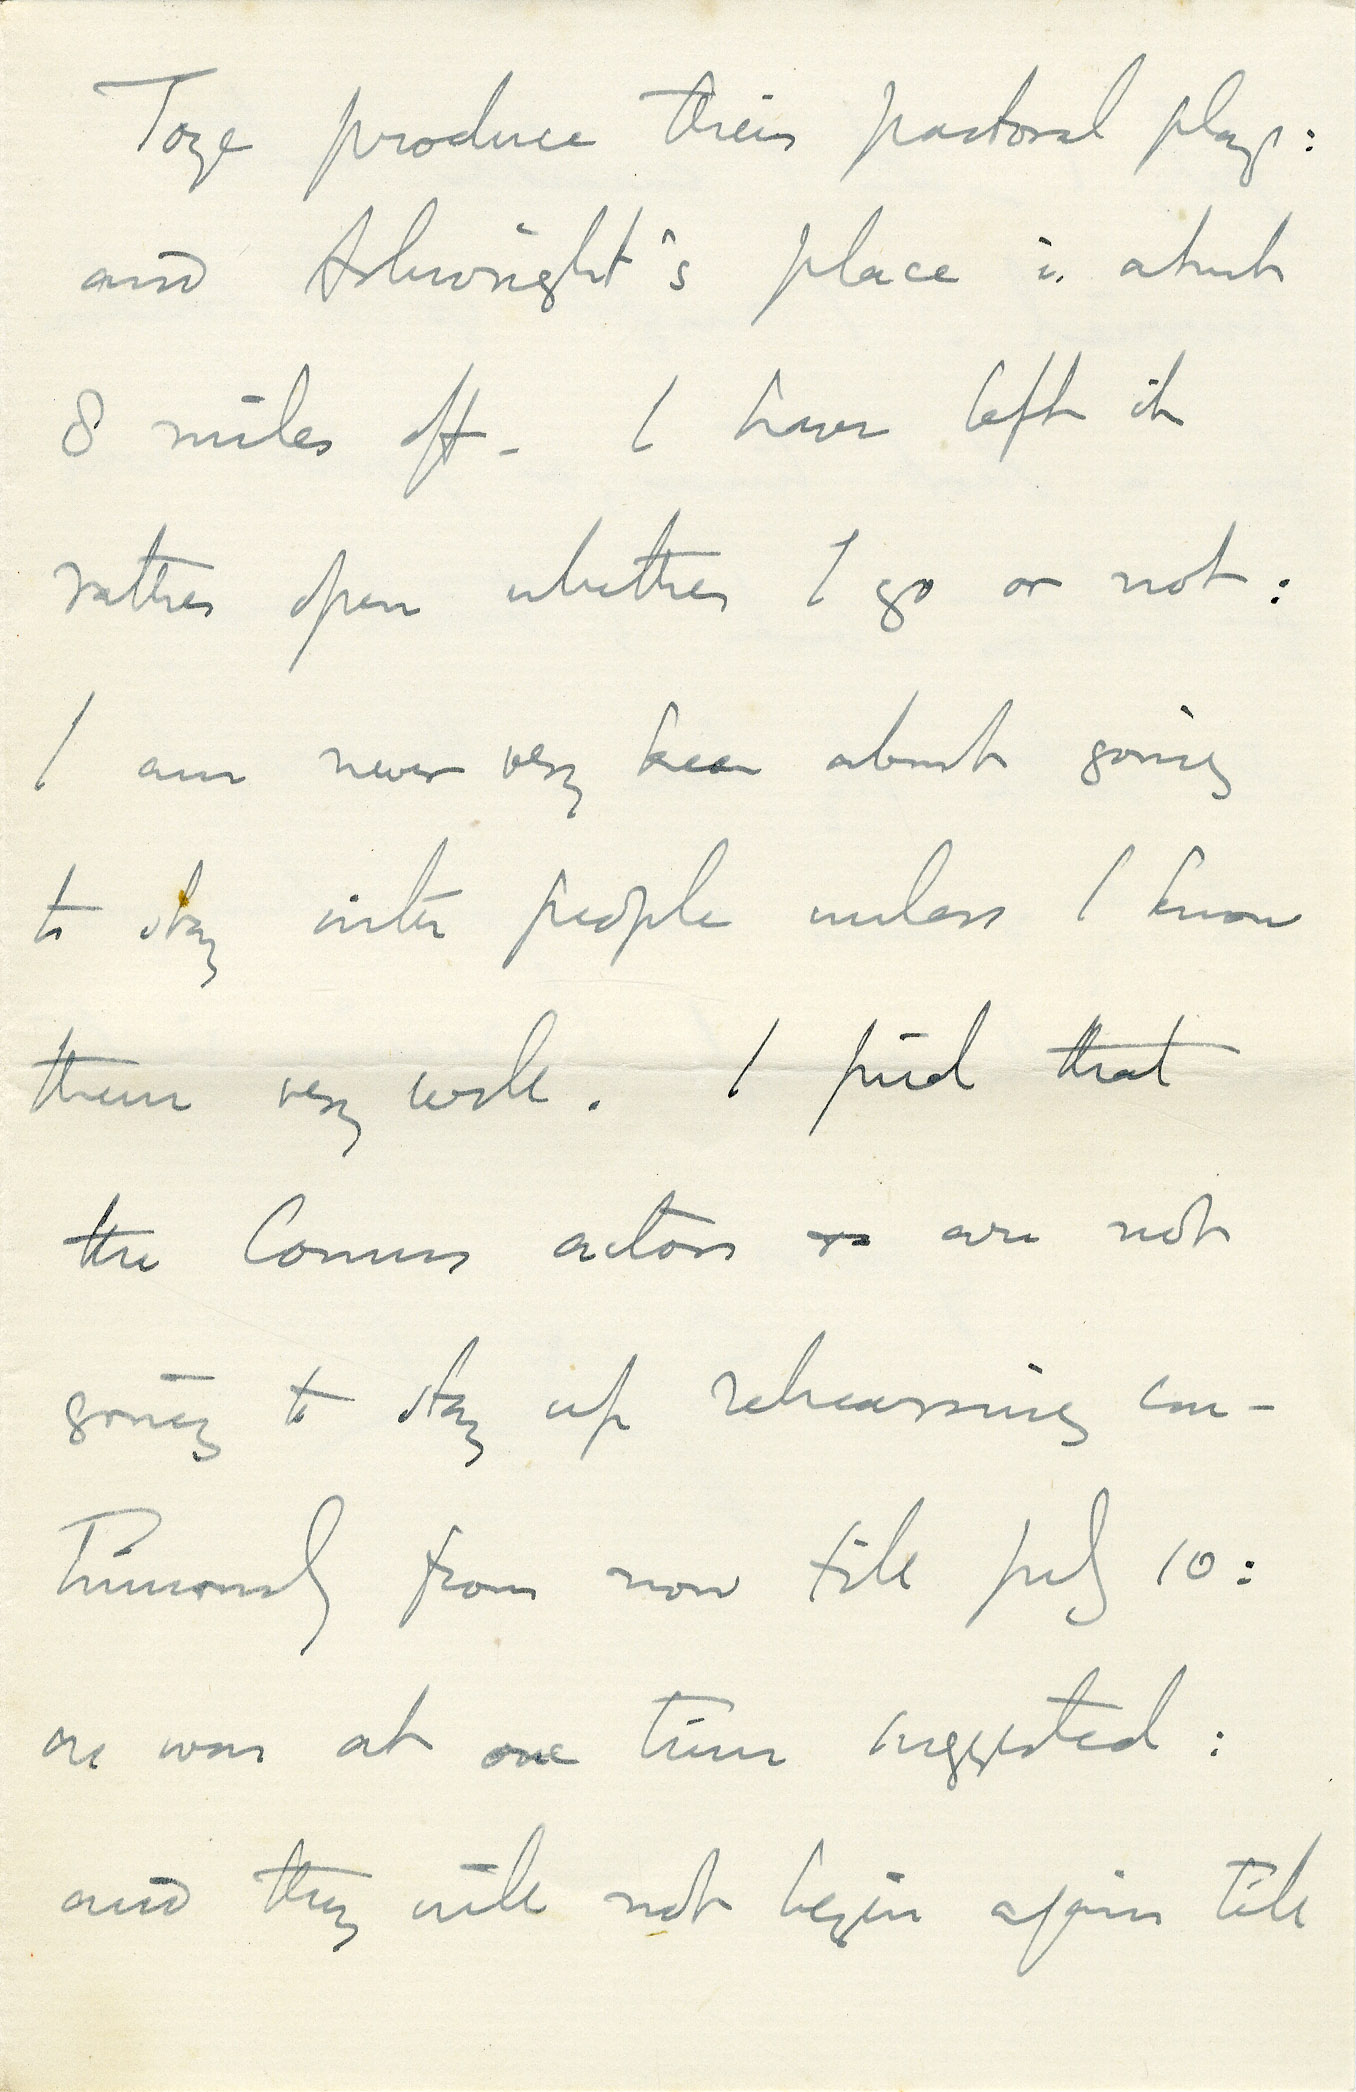 Toye produce their pastoral plays:
and Arkwright's place is about
8 miles off. I have left it
rather open whether I go or not:
I am never very keen about going
to stay with people unless I know
them very well. I find that
the Comus actors are not
going to stay up rehearsing con-
tinuously from now till July 10:
as was at one time suggested:
and they will not begin again till